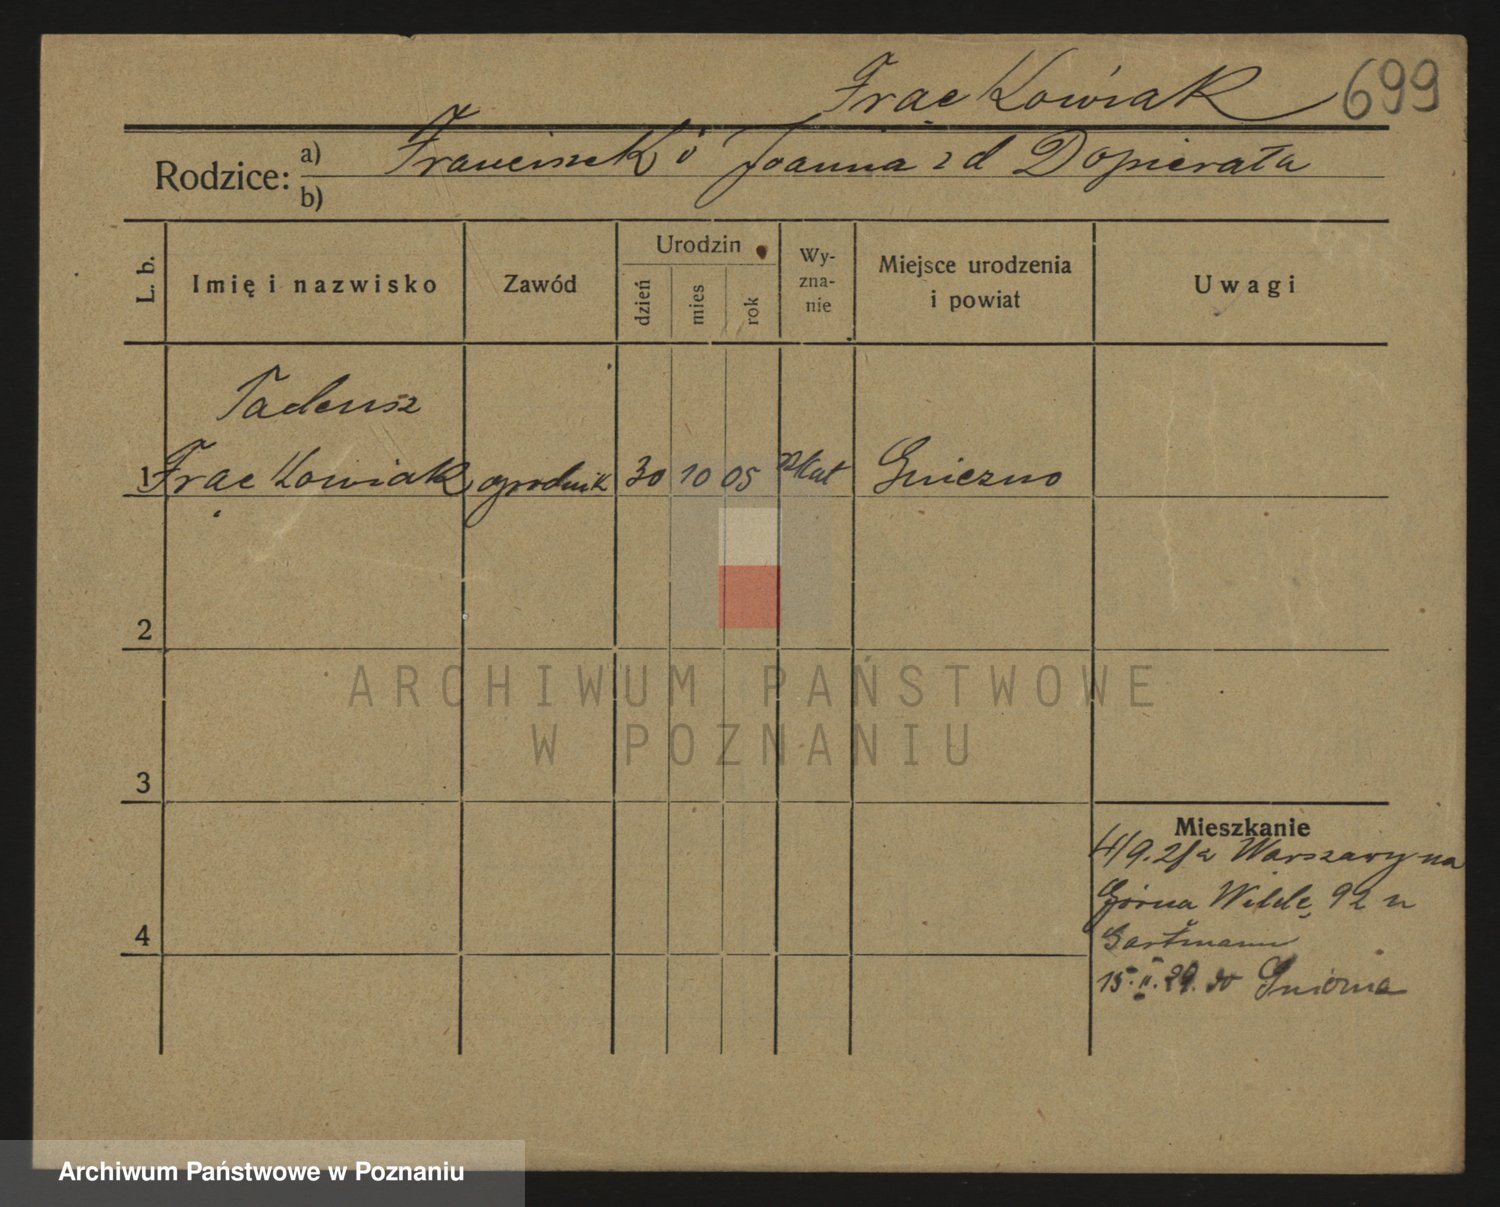 Frąckowiak 699
Rodzice: a) Franciszek i Joanna zd Dopierała
b)
L. b. Imię i nazwisko Zawód Urodzin dzień mies rok Wy-zna-nie Miejsce urodzenia i powiat Uwagi
Tadeusz
1 Frąckowiak ogrodnik 30 10 05 rzkat Gniezno
2
ARCHIWUM PAŃSTWOWE
W POZNANIU
3
Mieszkanie
4/9.28 z Warszawy na
Górna Wildę 92 u
4
15.II.29. do Gniezna
Archiwum Państwowe w Poznaniu